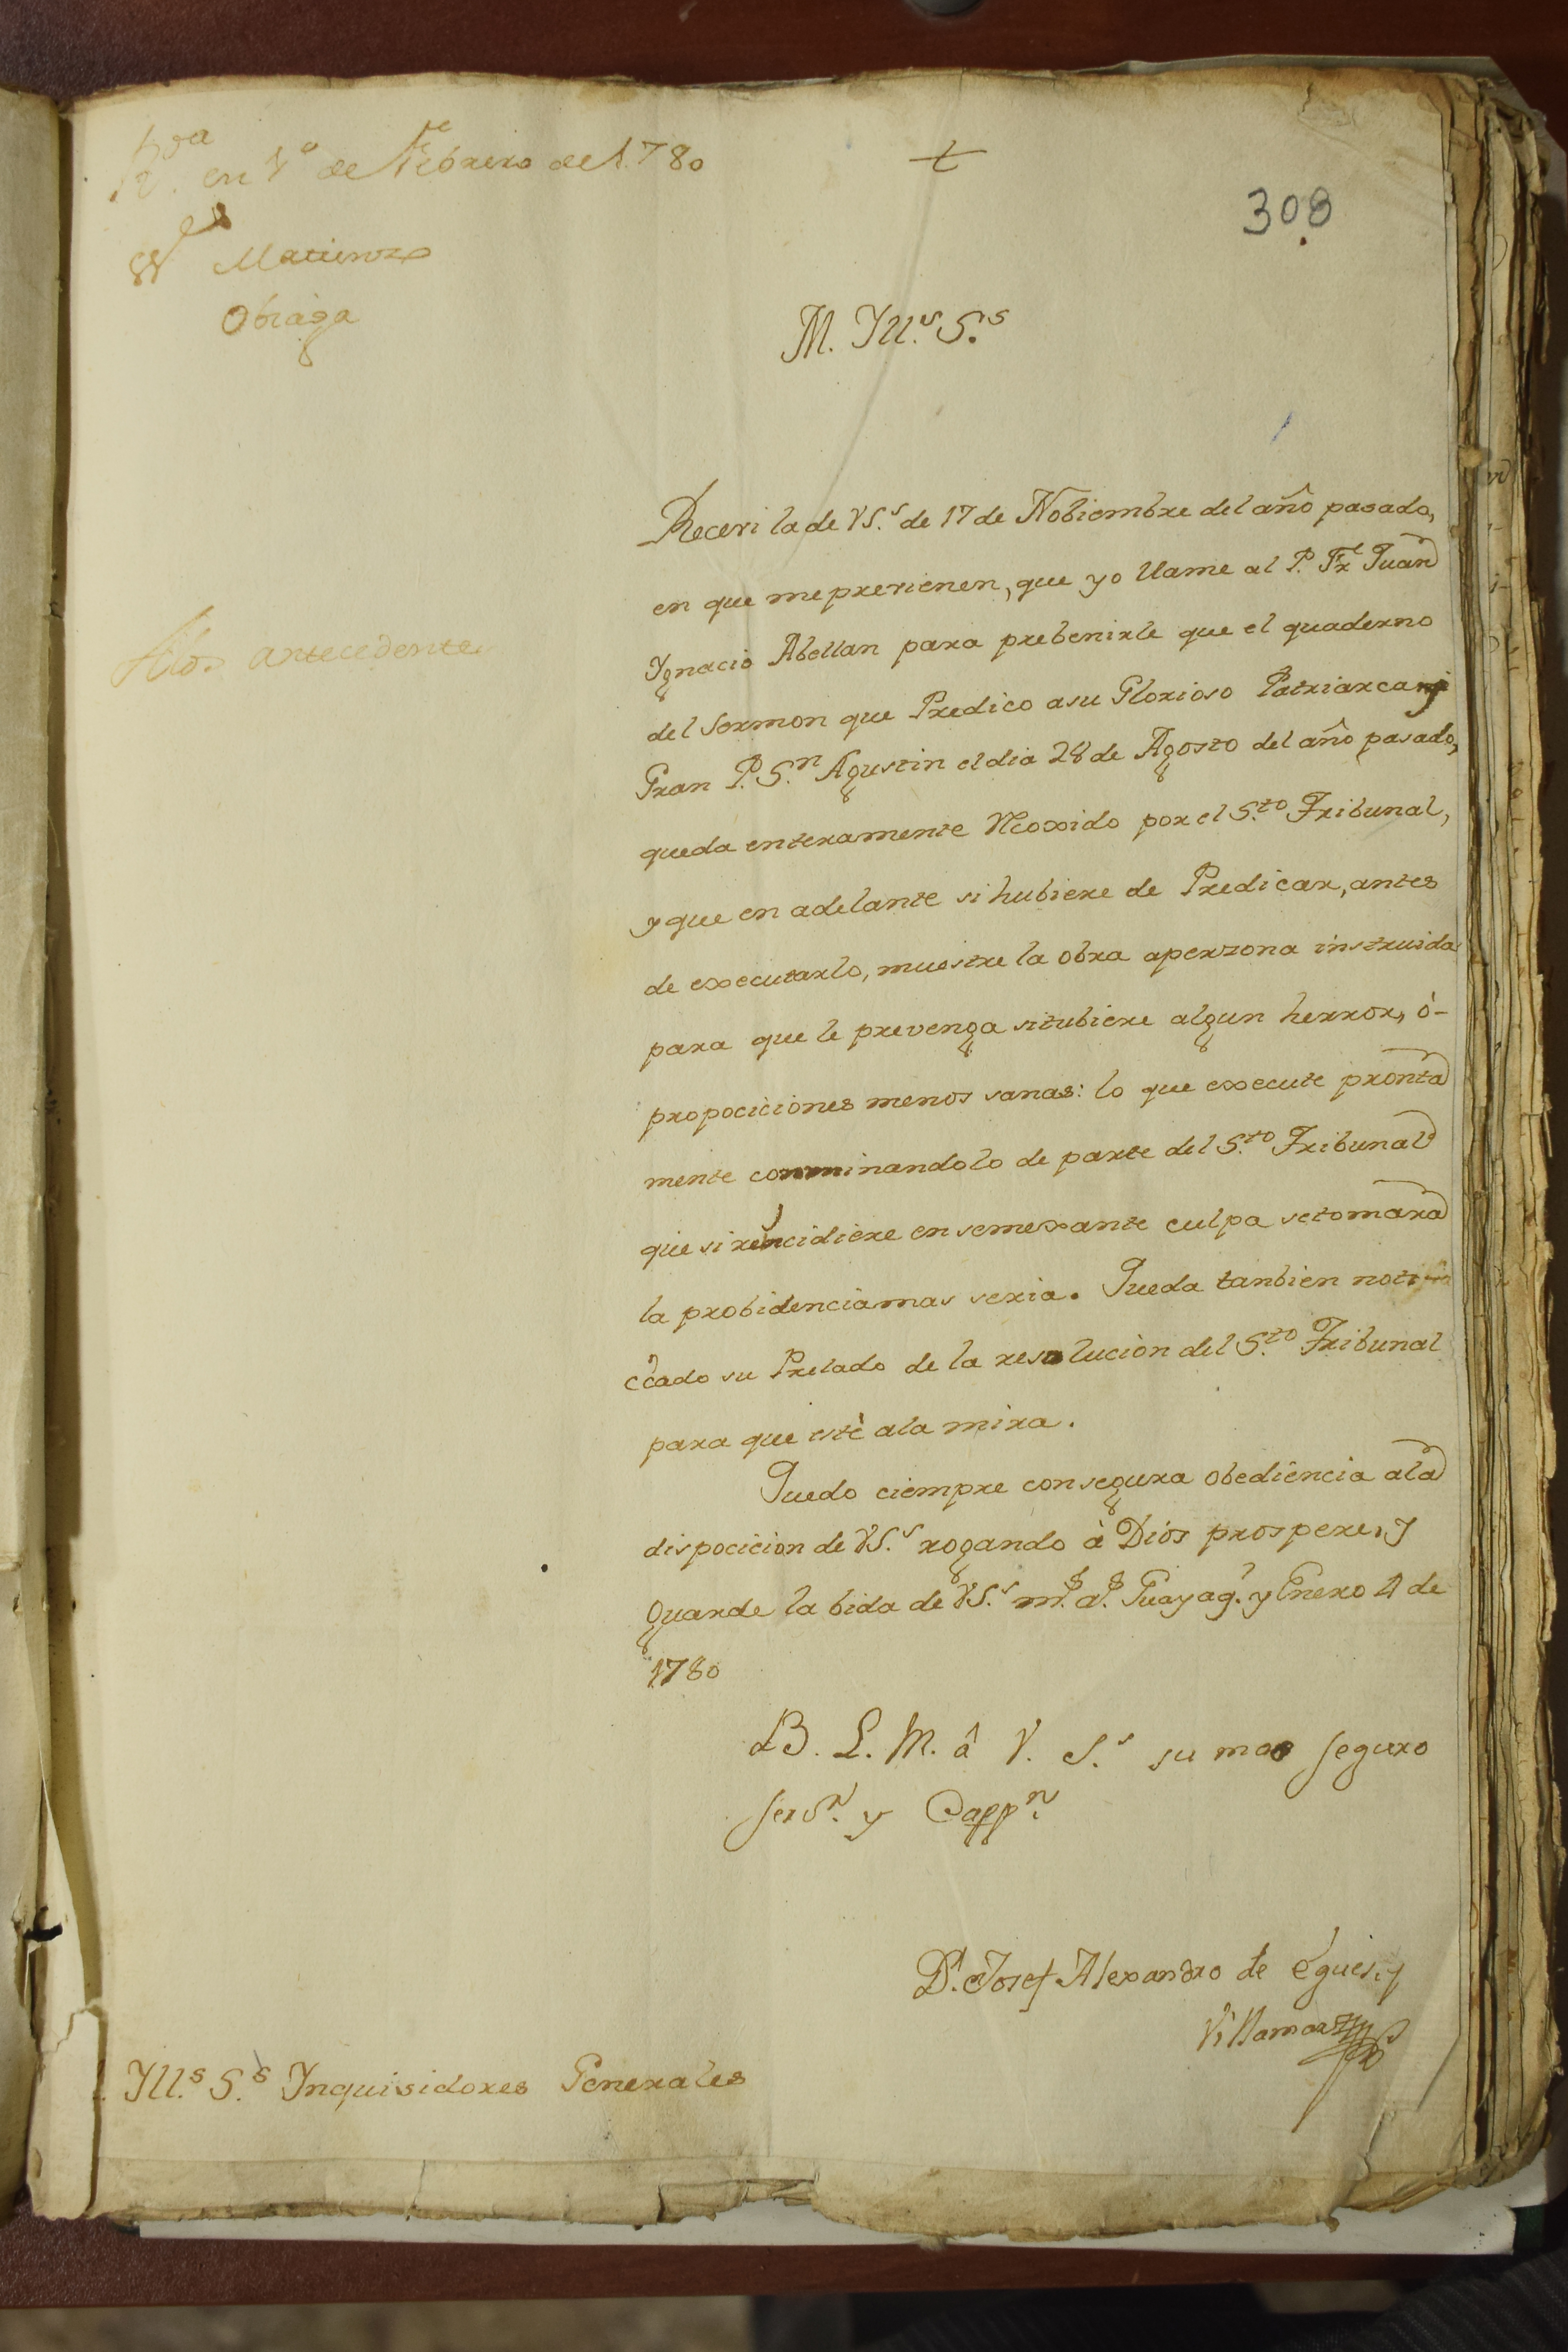 R.da en 1.o de Febrero de 1780
S.res
Matienzo
Obiaga
308
M. Yll.s S.s
A los antecedentes
Receví la de VS.s de 17 de Nobiembre del año pasado,
en que me previenen, que yo llame al P. Fr. Juan
Ygnacio Abellan para prebenirle que el quaderno
del Sermon que Predico a su Glorioso Patriarca y
Gran P. S.n Agustin el dia 28 de Agosto del año pasado,
queda enteramente Recoxido por el S.to Tribunal,
y que en adelante si hubiere de Predicar, antes
de executarlo, muestre la obra a perzona instruida
para que le prevenga si tubiere algun herror, ò
propociciones menos sanas: lo que execute pronta
mente conminandolo de parte del S.to Tribunal
que si reincidiere en semexante culpa se tomara
la probidencia mas seria. Queda tanbien noti
cado su Prelado de la resolucion del S.to Tribunal
para que estè a la mira.
Quedo ciempre con segura obediencia a la
dispocicion de VS.s rogando à Dios prospere, y
guarde la bida de VS.s m.s a.s Guayaq.l y Enero 4 de
1780
B. L. M. â V. S.s su mas seguro
serv.r y Capp.n
D.r Josef Alexandro de Egues, y
Villamar
Yll.s S.s Ynquisidores Generales